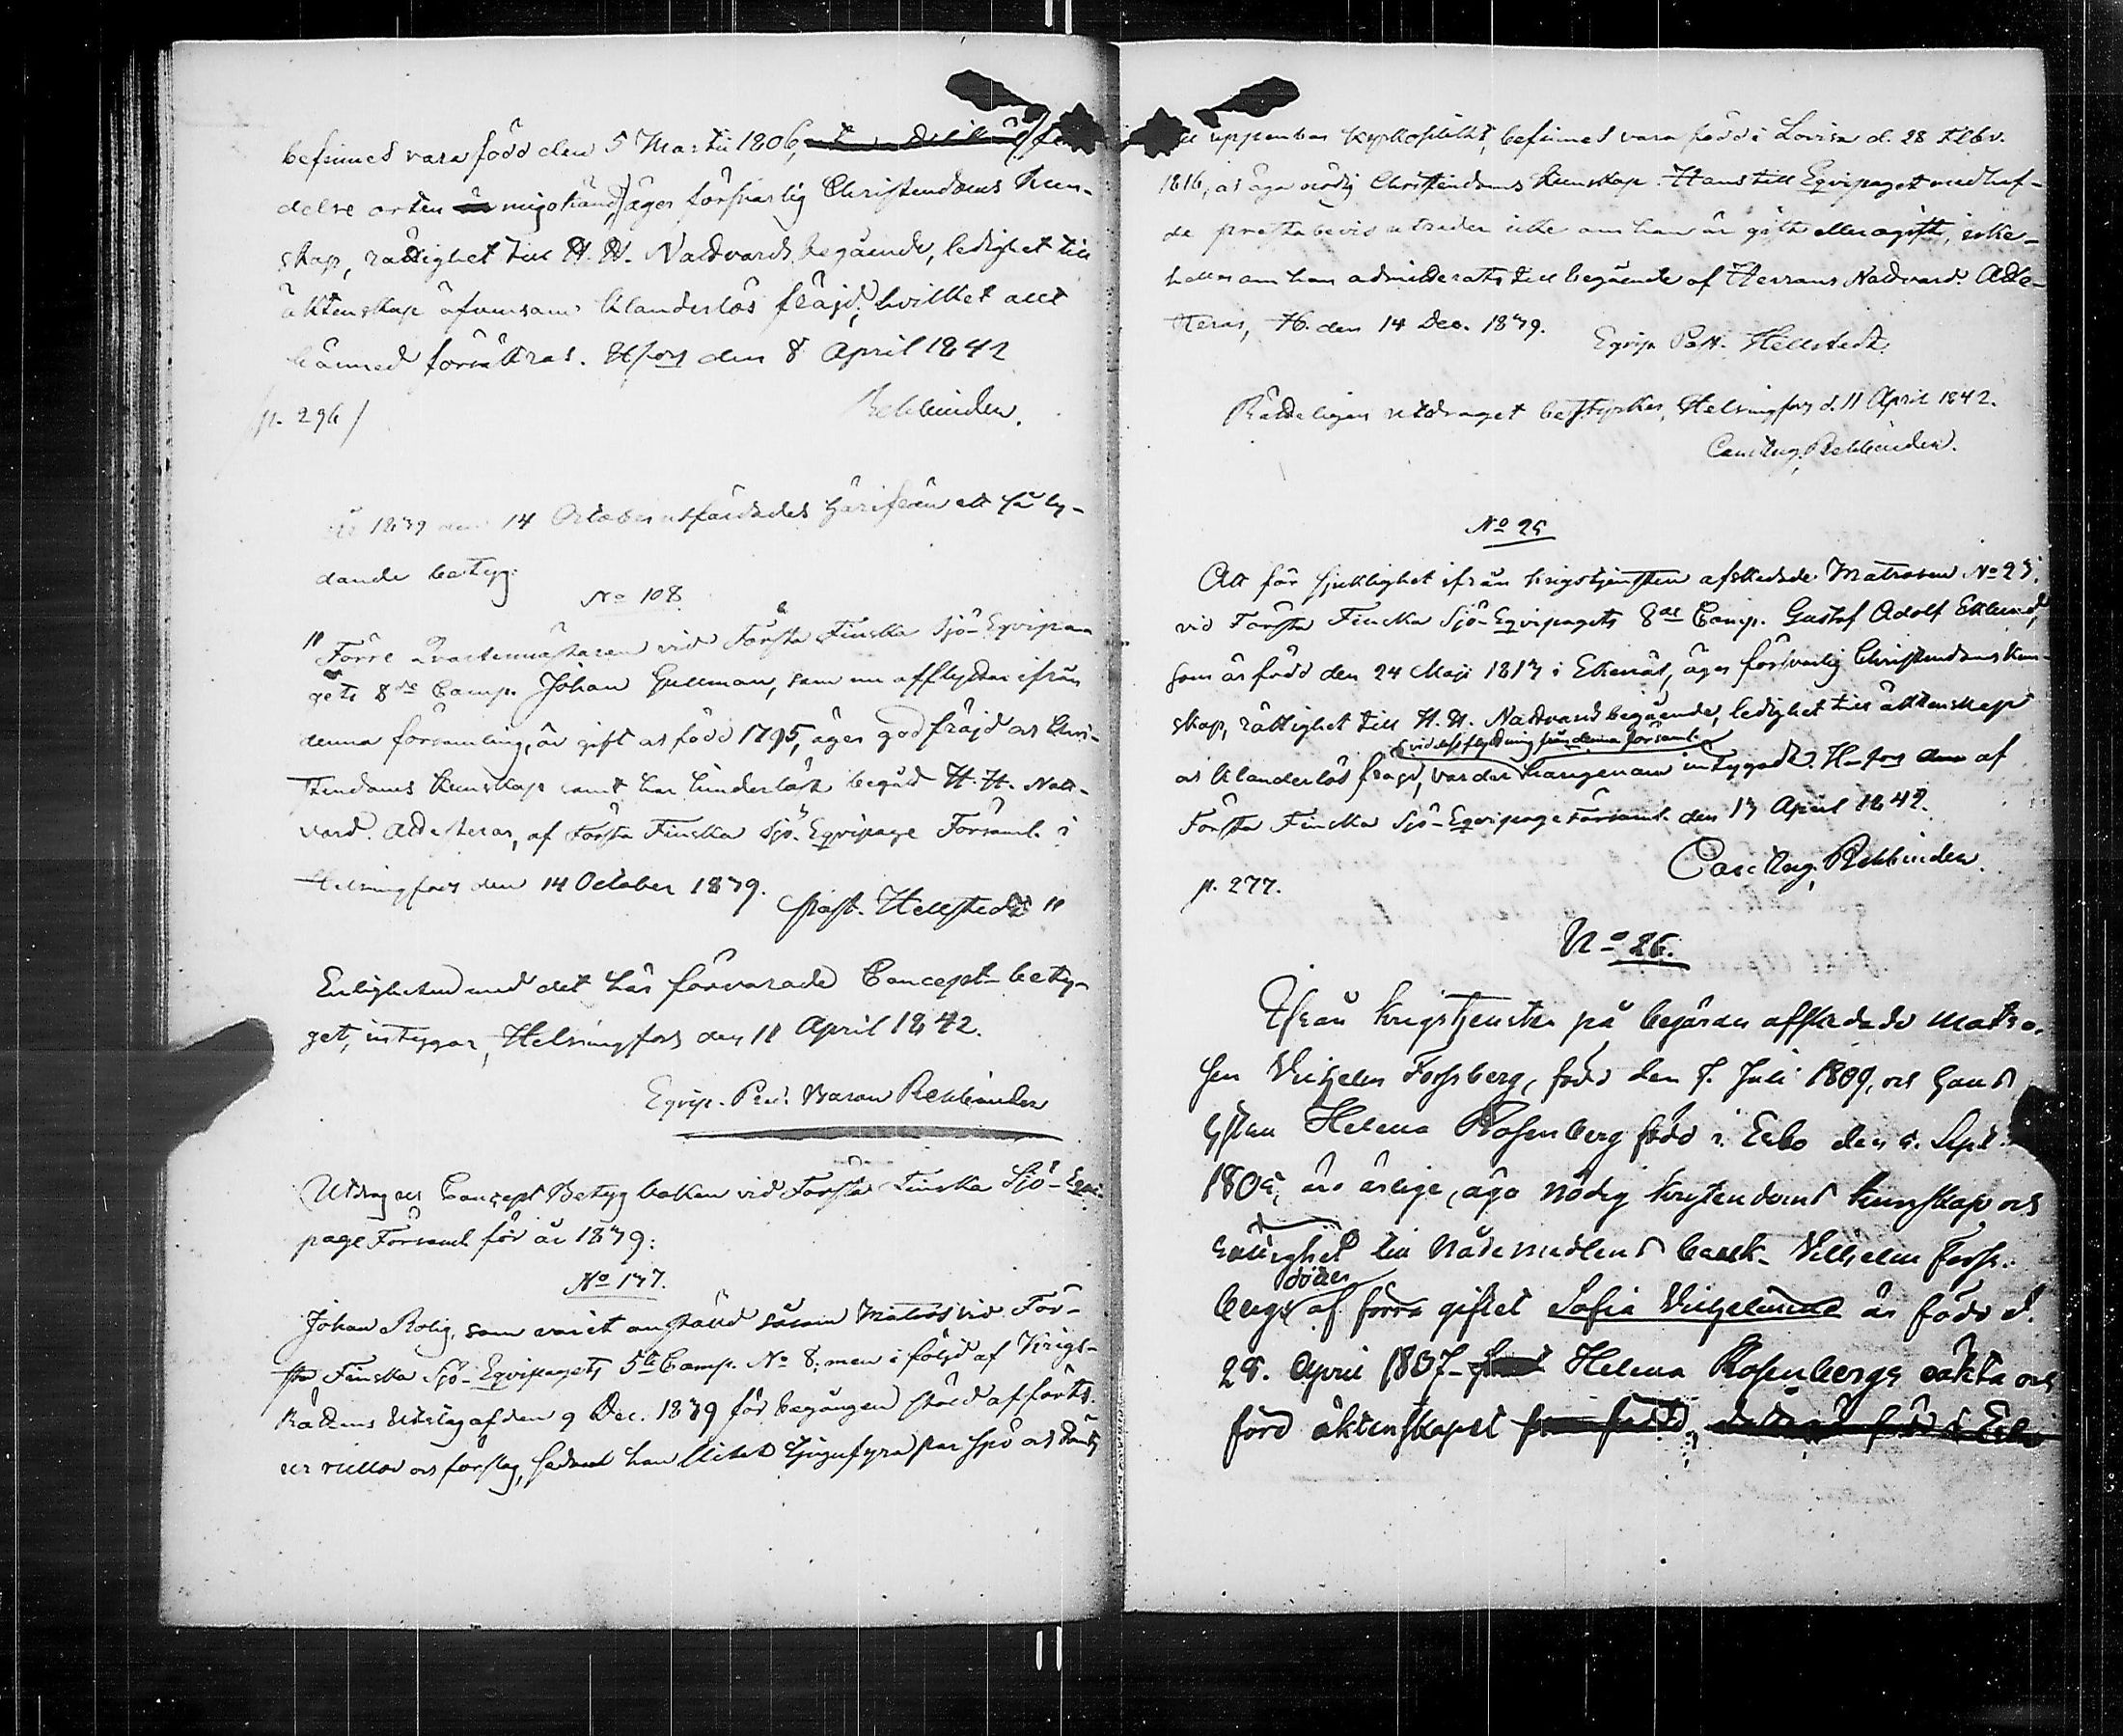 befinnes vara född den 5 Martii 1806,
delse orten mig okänd) äger försvarlig Christendoms kun-
skap, rättighet till H. H. Nattvards begående, ledighet till
äktenskap äfvensom klanderlös fräjd, hvilket allt
härmed försäkras. Hfors den 8 April 1842
Rehbinder.
p. 296/
År 1839 den 14 October utfärdades härifrån ett så ly-
dande betyg:
No 108
"Förre Qvartermästaren vid Första Finska Sjö-Eqvipa-
gets 8de Comp. Johan Gullman, som nu afflyttar ifrån
denna församling, är gift och född 1795, äger god fräjd och Chri-
stendoms kunskap samt har hinderlöst begått H. H. Natt-
vard. Attesteras, af Första Finska Sjö-Eqvipage Församl. i
Helsingfors den 14 October 1839.
Past. Hellstedt"
Enligheten med det här förvarade Concept-bety-
get, intygar, Helsingfors den 11 April 1842.
Eqvip. Pred. Baron Rehbinder
Utdrag ur Concept Betyg boken vid Första Finska Sjö-Eqvi-
page Församl. för år 1839:
No 137.
Johan Rolig, som varit anstäld såsom Matros vid För-
sta Finska Sjö-Eqvipagets 5te Comp. No 8; men i följd af Krigs-
Rättens Utslag af den 9 Dec. 1839 för begången stöld afförts
ur rullor och förslag, sedan han slitit tjugufyra par spö och
uppenbar kyrkoplikt, befinnes vara född i Lovisa d. 28 Febr.
1816, och äga nödig Christendoms kunskap. Hans till Eqvipaget medhaf-
da prestabevis utreder icke om han är gift eller ogift, icke-
heller om han admitterats till begående af Herrans Nattvard. Atte-
steras, H. den 14 Dec. 1839.
Eqvip. Past. Hellstedt.
Rätteligen utdraget bestyrker, Helsingfors d. 11 April 1842.
Carl Aug. Rehbinder.
No 25
Att för sjuklighet ifrån krigstjensten afskedade Matrosen No 23,
vid Första Finska Sjö-Eqvipagets 8de Comp. Gustaf Adolf Eklund,
som är född den 24 Maji 1813 i Ekenäs, äger försvarlig Christendoms kun-
skap, rättighet till H. H. Nattvards begående, ledighet till äktenskap
vid dess flyttning från denna församl.
och klanderlös frejd, varder härigenom intygadt. H-fors af
Första Finska Sjö-Eqvipage Församl. den 13 April 1842.
Carl Aug. Rehbinder.
p. 277.
No 26.
Ifrån krigstjensten på begäran afskedade matro-
sen Vilhelm Forssberg, född den 7. Juli 1809, och hans
hustru Helena Rosenberg född i Esbo den 5. Sept.
1805, äro ärlige, äga nödig kristendoms kunskap och
rättighet till Nådemedlens bruk. Vilhelm Forss-
dotter
bergs af förra giftet Sofia Vilhelmina är född d.
28. April 1837. Helena Rosenbergs oäkta och
förd äktenskapet